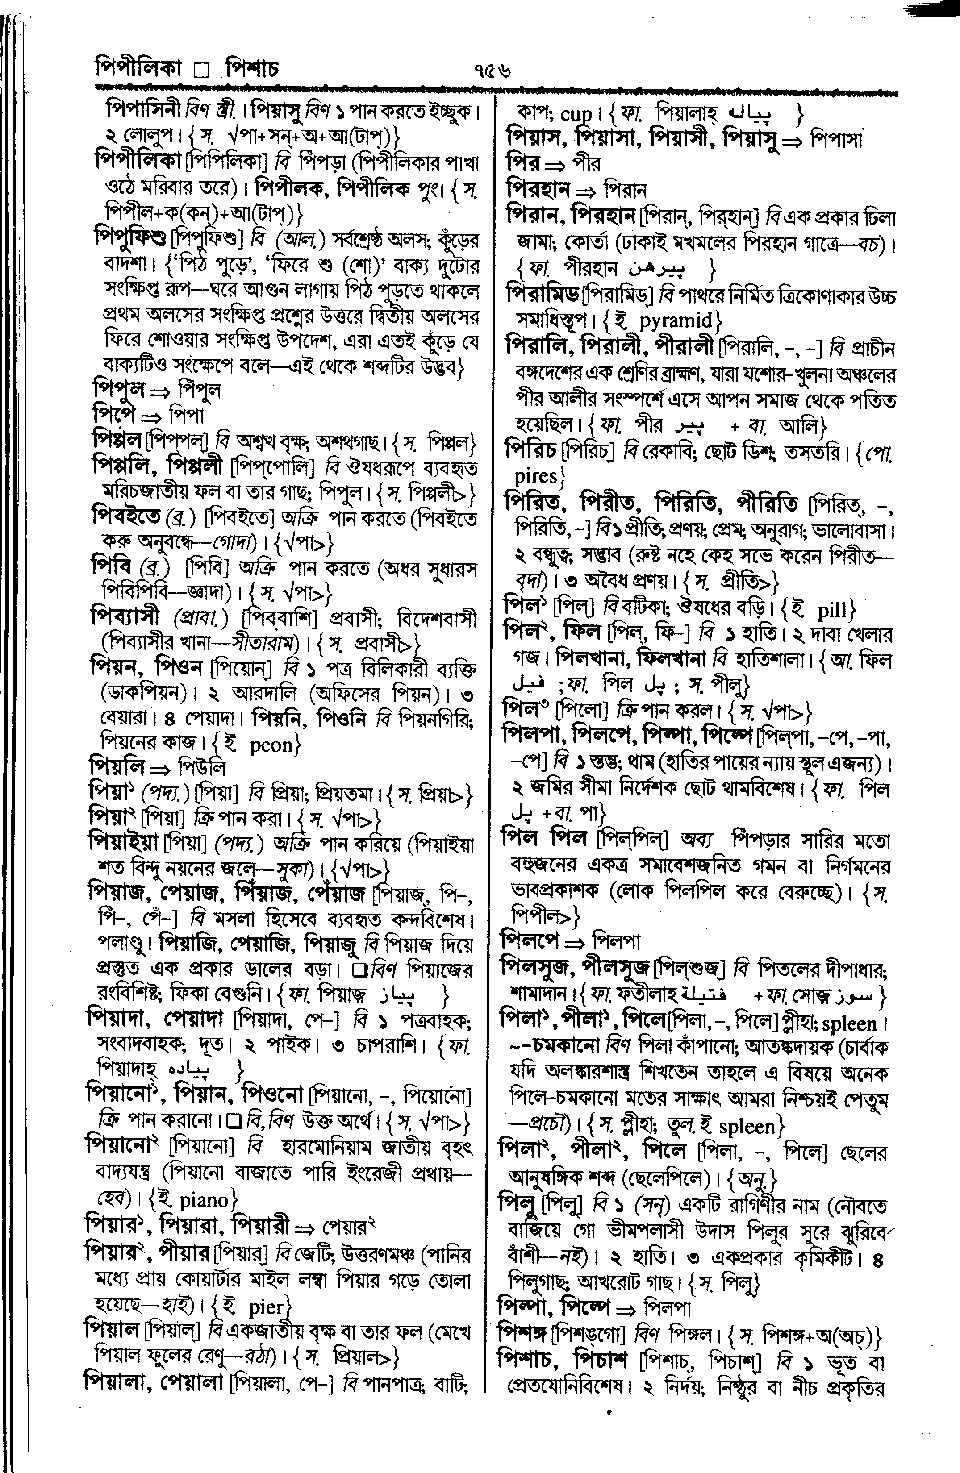 পিপীলিকা □ পিশাচ ৭৫৬
পিপাসিনী বিণ স্ত্রী। পিয়াসু বিণ ১ পান করতে ইচ্ছুক।
২ লোলুপ। {স. √পা+সন্+অ+আ(টাপ্)}
পিপীলিকা [পিপিলিকা] বি পিঁপড়া (পিপীলিকার পাখা
ওঠে মরিবার তরে)। পিপীলক, পিপীলিক পুং। {স.
পিপীল+ক(কন্)+আ(টাপ্)}
পিপুফিশু [পিপুফিশু] বি (আল.) সর্বশ্রেষ্ঠ অলস; কুঁড়ের
বাদশা। {‘পিঠ পুড়ে’, ‘ফিরে শু (শো)’ বাক্য দুটোর
সংক্ষিপ্ত রূপ—ঘরে আগুন লাগায় পিঠ পুড়তে থাকলে
প্রথম অলসের সংক্ষিপ্ত প্রশ্নের উত্তরে দ্বিতীয় অলসের
ফিরে শোওয়ার সংক্ষিপ্ত উপদেশ, এরা এতই কুঁড়ে যে
বাক্যটিও সংক্ষেপে বলে—এই থেকে শব্দটির উদ্ভব}
পিপুল ⇒ পিঁপুল
পিপে ⇒ পিপা
পিপ্পল [পিপ্‌পল্] বি অশ্বত্থ বৃক্ষ; অশথগাছ। {স. পিপ্পল}
পিপ্পলি, পিপ্পলী [পিপ্‌পোলি] বি ঔষধরূপে ব্যবহৃত
মরিচজাতীয় ফল বা তার গাছ; পিপুল। {স. পিপ্পলী>}
পিবইতে (ব্র.) [পিবইতে] অক্রি পান করতে (পিবইতে
করু অনুবন্ধে—গোদা)। {√পা>}
পিবি (ব্র.) [পিবি] অক্রি পান করতে (অধর সুধারস
পিবিপিবি—জ্ঞাদা)। {স. √পা>}
পিব্যাসী (প্রাবা.) [পিব্‌বাশি] প্রবাসী; বিদেশবাসী
(পিব্যাসীর খানা—সীতারাম)। {স. প্রবাসী>}
পিয়ন, পিওন [পিয়োন্] বি ১ পত্র বিলিকারী ব্যক্তি
(ডাকপিয়ন)। ২ আরদালি (অফিসের পিয়ন)। ৩
বেয়ারা। ৪ পেয়াদা। পিয়নি, পিওনি বি পিয়নগিরি;
পিয়নের কাজ। {ই. peon}
পিয়লি ⇒ পিউলি
পিয়া১ (পদ্য.) [পিয়া] বি প্রিয়া; প্রিয়তমা। {স. প্রিয়া>}
পিয়া২ [পিয়া] ক্রি পান করা। {স. √পা>}
পিয়াইয়া [পিয়া] (পদ্য.) অক্রি পান করিয়ে (পিয়াইয়া
শত বিন্দু নয়নের জলে—সুকা)। {√পা>}
পিয়াজ, পেয়াজ, পিঁয়াজ, পেঁয়াজ [পিয়াজ্, পি-,
পিঁ-, পেঁ-] বি মসলা হিসেবে ব্যবহৃত কন্দবিশেষ।
পলাণ্ডু। পিয়াজি, পেয়াজি, পিয়াজু বি পিয়াজ দিয়ে
প্রস্তুত এক প্রকার ডালের বড়া। □ বিণ পিয়াজের
রংবিশিষ্ট; ফিকা বেগুনি। {ফা. পিয়াজ় پیاز }
পিয়াদা, পেয়াদা [পিয়াদা, পে-] বি ১ পত্রবাহক;
সংবাদবাহক; দূত। ২ পাইক। ৩ চাপরাশি। {ফা.
পিয়াদাহ্ پیاده }
পিয়ানো১, পিয়ান, পিওনো [পিয়ানো, -, পিয়োনো]
ক্রি পান করানো। □ বি, বিণ উক্ত অর্থে। {স. √পা>}
পিয়ানো২ [পিয়ানো] বি হারমোনিয়াম জাতীয় বৃহৎ
বাদ্যযন্ত্র (পিয়ানো বাজাতে পারি ইংরেজী প্রথায়—
হেব)। {ই. piano}
পিয়ার১, পিয়ারা, পিয়ারী ⇒ পেয়ার২
পিয়ার২, পীয়ার [পিয়ার্] বি জেটি; উত্তরণমঞ্চ (পানির
মধ্যে প্রায় কোয়ার্টার মাইল লম্বা পিয়ার গড়ে তোলা
হয়েছে—হাই)। {ই. pier}
পিয়াল [পিয়াল্] বি একজাতীয় বৃক্ষ বা তার ফল (মেখে
পিয়াল ফুলের রেণু—রঠা)। {স. প্রিয়াল>}
পিয়ালা, পেয়ালা [পিয়ালা, পে-] বি পানপাত্র; বাটি;
কাপ; cup। {ফা. পিয়ালাহ্ پیاله }
পিয়াস, পিয়াসা, পিয়াসী, পিয়াসু ⇒ পিপাসা
পির ⇒ পীর
পিরহান ⇒ পিরান
পিরান, পিরহান [পিরান্, পির্‌হান্] বি এক প্রকার ঢিলা
জামা; কোর্তা (ঢাকাই মখমলের পিরহান গাত্রে—বচ)।
{ফা. পীরহান پیرهن }
পিরামিড [পিরামিড্] বি পাথরে নির্মিত ত্রিকোণাকার উচ্চ
সমাধিস্তূপ। {ই. pyramid}
পিরালি, পিরালী, পীরালী [পিরালি, -, -] বি প্রাচীন
বঙ্গদেশের এক শ্রেণির ব্রাহ্মণ, যারা যশোর-খুলনা অঞ্চলের
পীর আলীর সংস্পর্শে এসে আপন সমাজ থেকে পতিত
হয়েছিল। {ফা. পীর پیر + বা. আলি}
পিরিচ [পিরিচ্] বি রেকাবি; ছোট ডিশ; তসতরি। {পো.
pires}
পিরিত, পিরীত, পিরিতি, পীরিতি [পিরিত্, -,
পিরিতি, -] বি ১ প্রীতি; প্রণয়; প্রেম; অনুরাগ; ভালোবাসা।
২ বন্ধুত্ব; সদ্ভাব (রুষ্ট নহে কেহ সভে করেন পিরীত—
বৃদা)। ৩ অবৈধ প্রণয়। {স. প্রীতি>}
পিল১ [পিল্] বি বটিকা; ঔষধের বড়ি। {ই. pill}
পিল২, ফিল [পিল্, ফি-] বি ১ হাতি। ২ দাবা খেলার
গজ। পিলখানা, ফিলখানা বি হাতিশালা। {আ. ফিল
فیل ; ফা. পিল پل ; স. পীলু}
পিল৩ [পিলো] ক্রি পান করল। {স. √পা>}
পিলপা, পিলপে, পিল্পা, পিল্পে [পিল্‌পা, -পে, -পা,
-পে] বি ১ স্তম্ভ; থাম (হাতির পায়ের ন্যায় স্থূল এজন্য)।
২ জমির সীমা নির্দেশক ছোট থামবিশেষ। {ফা. পিল
پل + বা. পা}
পিল পিল [পিল্‌পিল্] অব্য পিঁপড়ার সারির মতো
বহুজনের একত্র সমাবেশজনিত গমন বা নির্গমনের
ভাবপ্রকাশক (লোক পিলপিল করে বেরুচ্ছে)। {স.
পিপীল>}
পিলপে ⇒ পিলপা
পিলসুজ, পীলসুজ [পিল্‌শুজ্] বি পিতলের দীপাধার;
শামাদান। {ফা. ফতীলাহ فتیلة + ফা. সোজ় سوز }
পিলা১, পীলা১, পিলে [পিলা, -, পিলে] প্লীহা; spleen।
~-চমকানো বিণ পিলা কাঁপানো; আতঙ্কদায়ক (চার্বাক
যদি অলঙ্কারশাস্ত্র শিখতেন তাহলে এ বিষয়ে অনেক
পিলে-চমকানো মতের সাক্ষাৎ আমরা নিশ্চয়ই পেতুম
—প্রচৌ)। {স. প্লীহা; তুল. ই spleen}
পিলা২, পীলা২, পিলে [পিলা, -, পিলে] ছেলের
আনুষঙ্গিক শব্দ (ছেলেপিলে)। {অনু.}
পিলু [পিলু] বি ১ (সন্) একটি রাগিণীর নাম (নৌবতে
বাজিয়ে গো ভীমপলাসী উদাস পিলুর সুরে ঝুরিবে
বাঁশী—নই)। ২ হাতি। ৩ একপ্রকার কৃমিকীট। ৪
পিলুগাছ; আখরোট গাছ। {স. পিলু}
পিল্পা, পিল্পে ⇒ পিলপা
পিশঙ্গ [পিশঙ্‌গো] বিণ পিঙ্গল। {স. পিশঙ্গ+অ(অচ্)}
পিশাচ, পিচাশ [পিশাচ্, পিচাশ্] বি ১ ভূত বা
প্রেতযোনিবিশেষ। ২ নির্দয়; নিষ্ঠুর বা নীচ প্রকৃতির